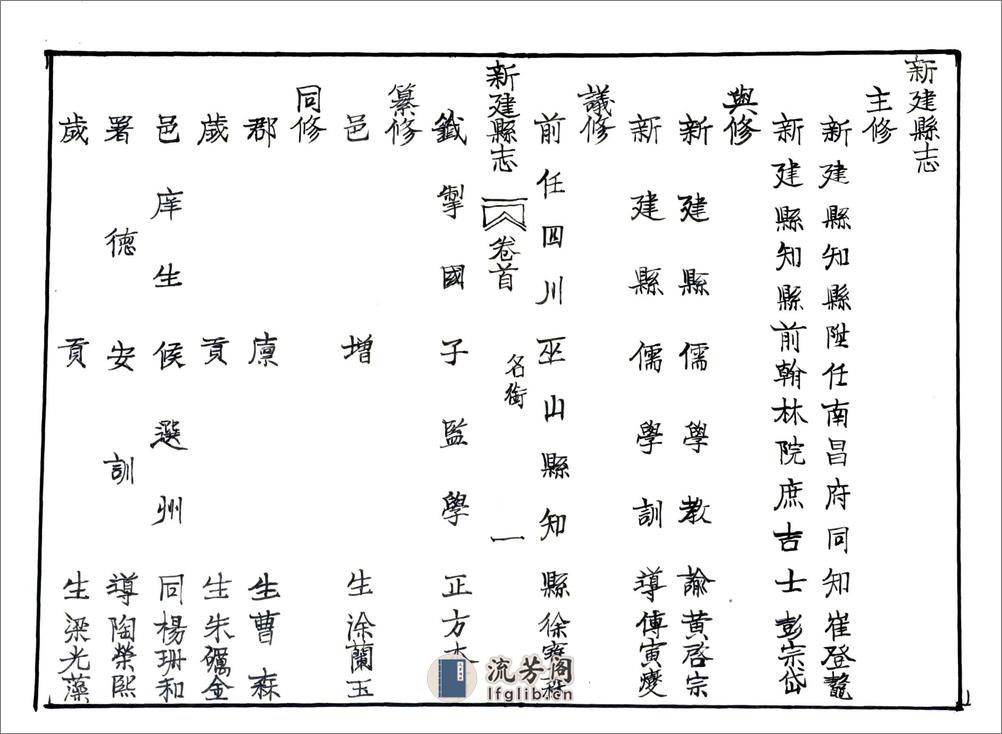 新建縣志
主修
新建縣知縣陞任南昌府同知崔登鼇
新建縣知縣前翰林院庶吉士彭宗岱
與修
新建縣儒學教諭黃啓宗
新建縣儒學訓導傅寅夔
議修
前任四川巫山縣知縣徐
新建縣志 卷首 名銜 一
籤掣國子監學正方
纂修
邑增生涂蘭玉
同修
郡廩生曹森
歲貢生朱礪金
邑庠生候選州同楊珊和
署德安訓導陶榮熙
歲貢生梁光藻
流芳阁
lfglib.cn